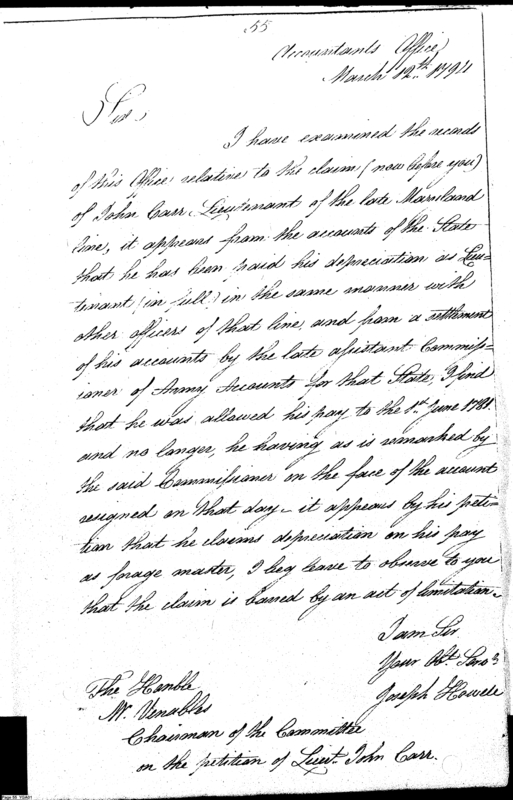 55
Accountants Office
March 12th. 1794
Sir,
I have examined the records
of this Office relative to the claim (now before you)
of John Carr Lieutenant of the late Maryland
line, it appears from the accounts of the State
that he has been paid his depreciation as Lieu-
tenant (in full) in the same manner with
other officers of that line, and from a settlement
of his accounts by the late assistant Commiss-
ioner of Army Accounts for that State, I find
that he was allowed his pay to the 1st. June 1781.
and no longer, he having as is remarked by
the said Commissioner on the face of the account
resigned on that day - it appears by his peti-
tion that he claims depreciation on his pay
as forage master, I beg leave to observe to you
that the claim is barred by an act of limitation.
I am Sir
Your Obt. Servt.
Joseph Howell
The Honble
Mr. Venables
Chairman of the Committee
on the petition of Lieut. John Carr.